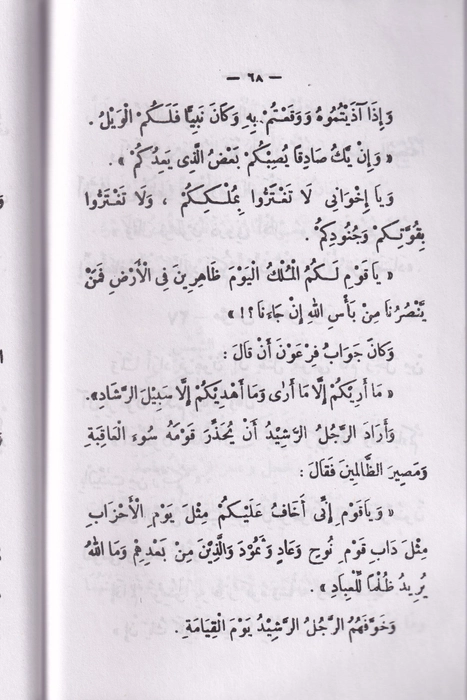 — ٦٨ —
وَإِذَا آذَيْتُمُوهُ وَوَقَعْتُمْ بِهِ وَكَانَ نَبِيًّا فَلَكُمْ الْوَيْلُ .
« وَإِنْ يَكُ صَادِقًا يُصِبْكُمْ بَعْضُ الَّذِى يَعِدُكُمْ » .
وَيَا إِخْوَانِى لَا تَغْتَرُّوا بِمُلْكِكُمْ ، وَلَا تَغْتَرُّوا
بِقُوَّتِكُمْ وَجُنُودِكُمْ .
« يَاقَوْمِ لَكُمُ الْمُلْكُ الْيَوْمَ ظَاهِرِينَ فِى الْأَرْضِ فَمَنْ
يَنْصُرُنَا مِنْ بَأْسِ اللهِ إِنْ جَاءَنَا ؟! »
وَكَانَ جَوَابُ فِرْعَوْنَ أَنْ قَالَ :
« مَا أُرِيكُمْ إِلَّا مَا أَرَى وَمَا أَهْدِيكُمْ إِلَّا سَبِيلَ الرَّشَادِ».
وَأَرَادَ الرَّجُلُ الرَّشِيدُ أَنْ يُحَذِّرَ قَوْمَهُ سُوءَ الْعَاقِبَةِ
وَمَصِيرَ الظَّالِمِينَ فَقَالَ :
« وَيَاقَوْمِ إِنِّى أَخَافُ عَلَيْكُمْ مِثْلَ يَوْمِ الْأَحْزَابِ
مِثْلَ دَابِ قَوْمِ نُوحٍ وَعَادٍ وَثَمُودَ وَالَّذِينَ مِنْ بَعْدِهِمْ وَمَا اللهُ
يُرِيدُ ظُلْمًا لِلْعِبَادِ » .
وَخَوَّفَهُمُ الرَّجُلُ الرَّشِيدُ يَوْمَ الْقِيَامَةِ .